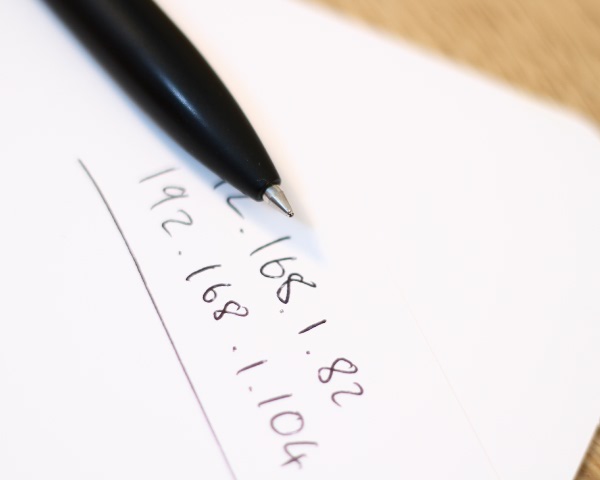 2.168.1.82
192.168.1.104